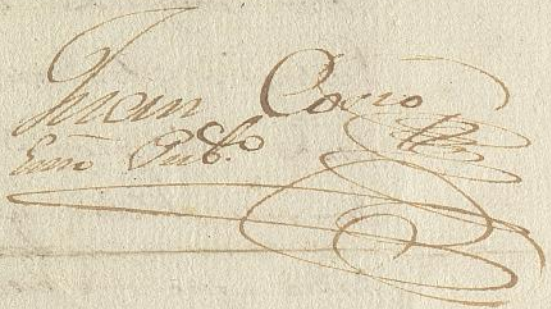 Juan Cosio
Essno Pubco